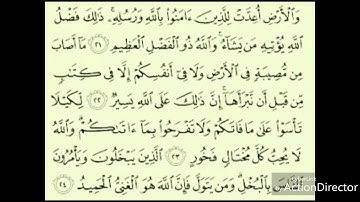 وَالْأَرْضِ أُعِدَّتْ لِلَّذِينَ ءَامَنُوا بِاللَّهِ وَرُسُلِهِۦ ذَٰلِكَ فَضْلُ
اللَّهِ يُؤْتِيهِ مَن يَشَآءُ وَاللَّهُ ذُو الْفَضْلِ الْعَظِيمِ ٢١ مَآ أَصَابَ
مِن مُّصِيبَةٍ فِي الْأَرْضِ وَلَا فِىٓ أَنفُسِكُمْ إِلَّا فِى كِتَٰبٍ
مِّن قَبْلِ أَن نَّبْرَأَهَآ إِنَّ ذَٰلِكَ عَلَى اللَّهِ يَسِيرٌ ٢٢ لِّكَيْلَا
تَأْسَوْا عَلَىٰ مَا فَاتَكُمْ وَلَا تَفْرَحُوا بِمَآ ءَاتَىٰكُمْ وَاللَّهُ
لَا يُحِبُّ كُلَّ مُخْتَالٍ فَخُورٍ ٢٣ الَّذِينَ يَبْخَلُونَ وَيَأْمُرُونَ
النَّاسَ بِالْبُخْلِ وَمَن يَتَوَلَّ فَإِنَّ اللَّهَ هُوَ الْغَنِىُّ الْحَمِيدُ ٢٤
ActionDirector